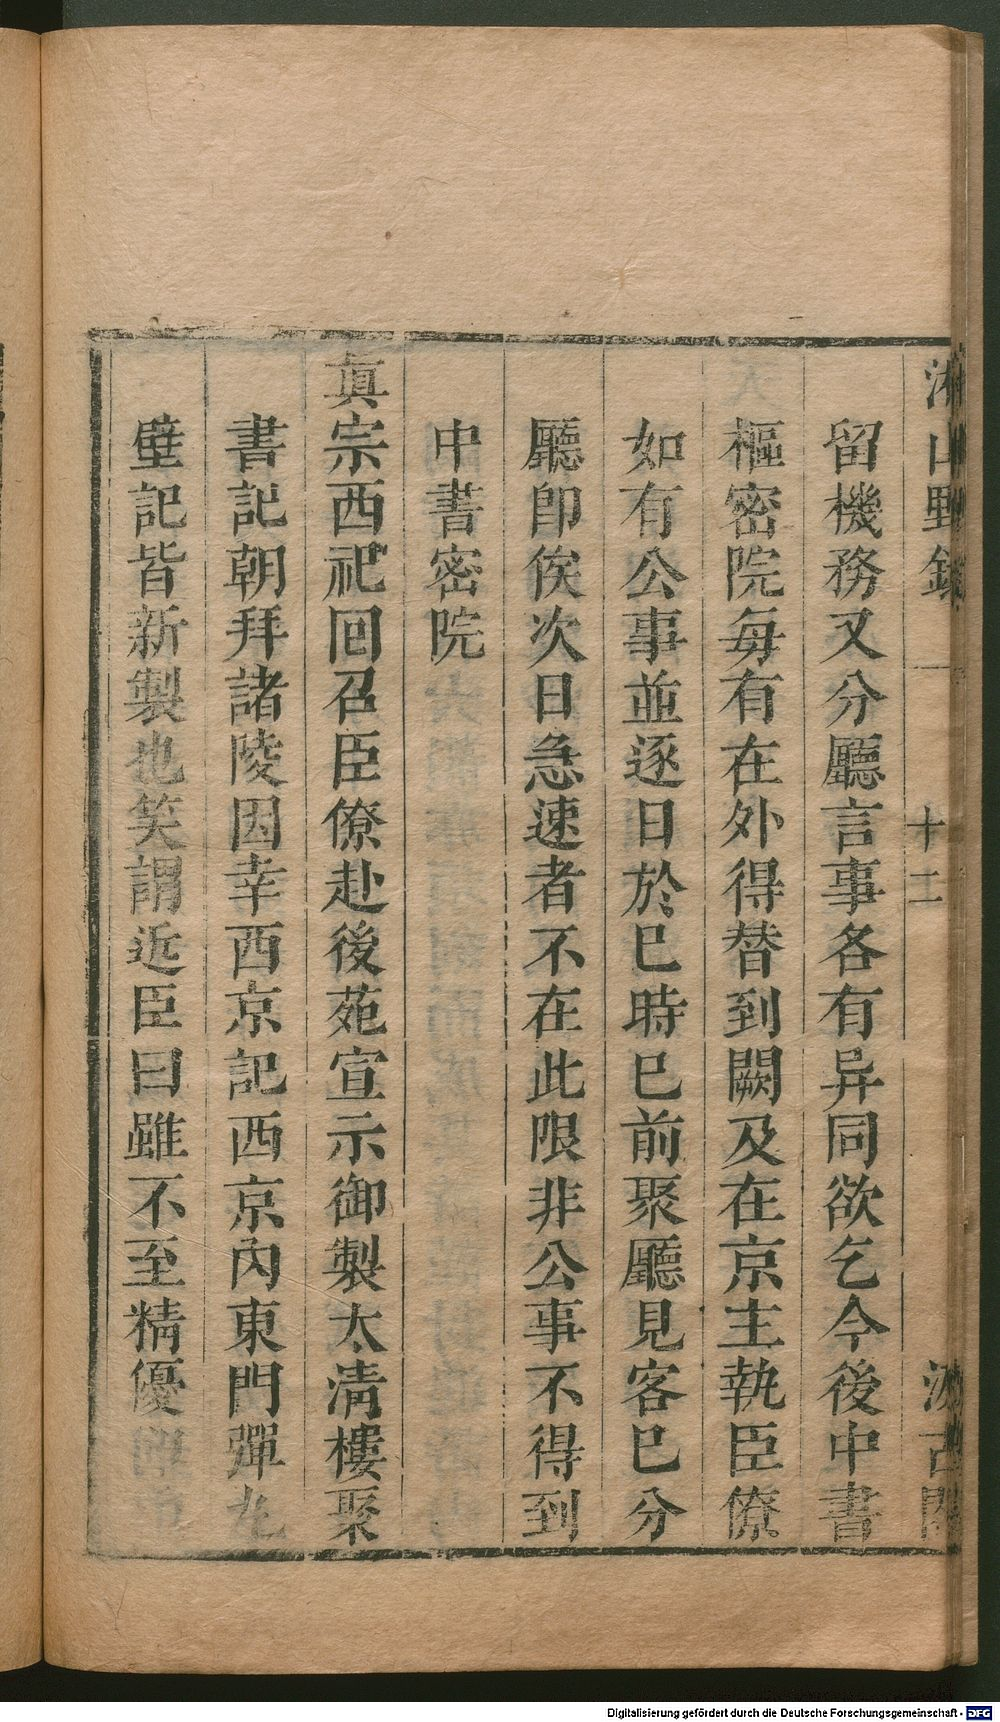 湘山野錄 十二 汲古閣
留機務又分廳言事各有异同欲乞今後中書
樞密院每有在外得替到闕及在京主執臣僚
如有公事並逐日於巳時巳前聚廳見客巳分
廳卽俟次日急速者不在此限非公事不得到
中書密院
眞宗西祀回召臣僚赴後苑宣示御製太淸樓聚
書記朝拜諸陵因幸西京記西京內東門彈丸
壁記皆新製也笑謂近臣曰雖不至精優
Digitalisierung gefördert durch die Deutsche Forschungsgemeinschaft - DFG